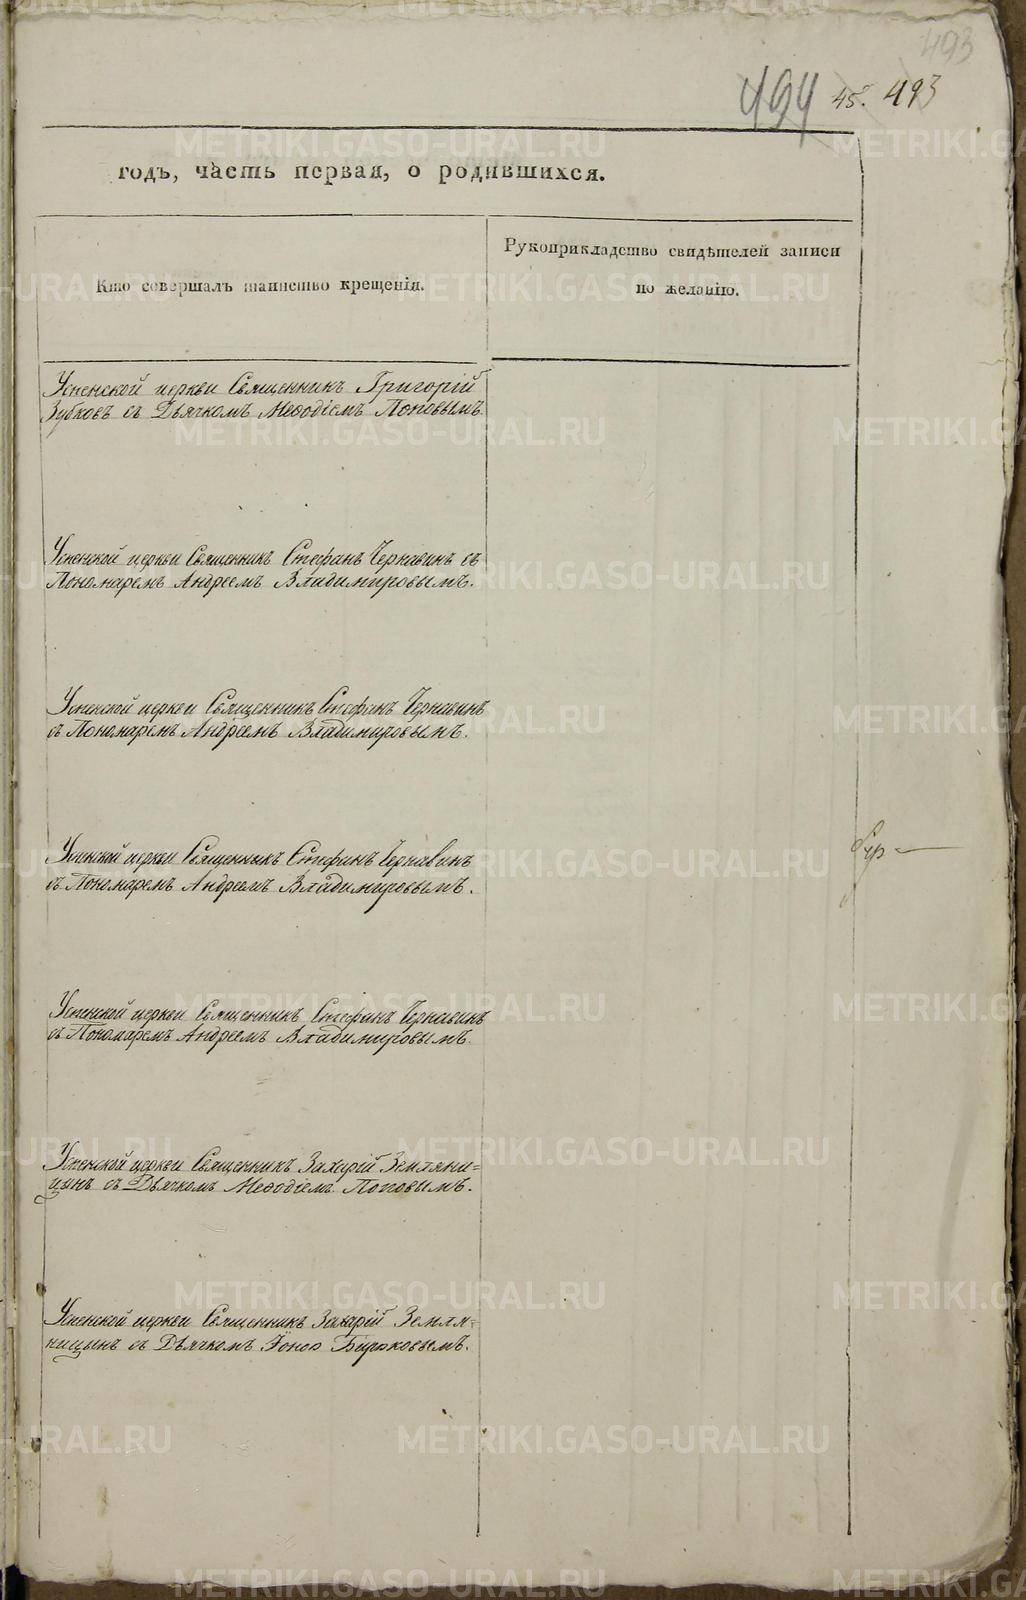 493
494 45. 493
годъ, часть первая, о родившихся.
Кто совершалъ таинство крещенія.
Рукоприкладство свидѣтелей записи
по желанію.
Успенской церкви Священникъ Григорій
Зубковъ съ Дьячкомъ Меѳодіемъ Поповымъ.
Успенской церкви Священникъ Стефанъ Чернавинъ съ
Пономаремъ Андреемъ Владимировымъ.
Успенской церкви Священникъ Стефанъ Чернавинъ
съ Пономаремъ Андреемъ Владимировымъ.
Успенской церкви Священникъ Стефанъ Чернавинъ
съ Пономаремъ Андреемъ Владимировымъ.
Успенской церкви Священникъ Стефанъ Чернавинъ
съ Пономаремъ Андреемъ Владимировымъ.
Успенской церкви Священникъ Захарій Земляни=
цынъ съ Дьячкомъ Меѳодіемъ Поповымъ.
Успенской церкви Священникъ Захарій Земля=
ницынъ съ Дьячкомъ Іоною Бирюковымъ.
METRIKI.GASO-URAL.RU